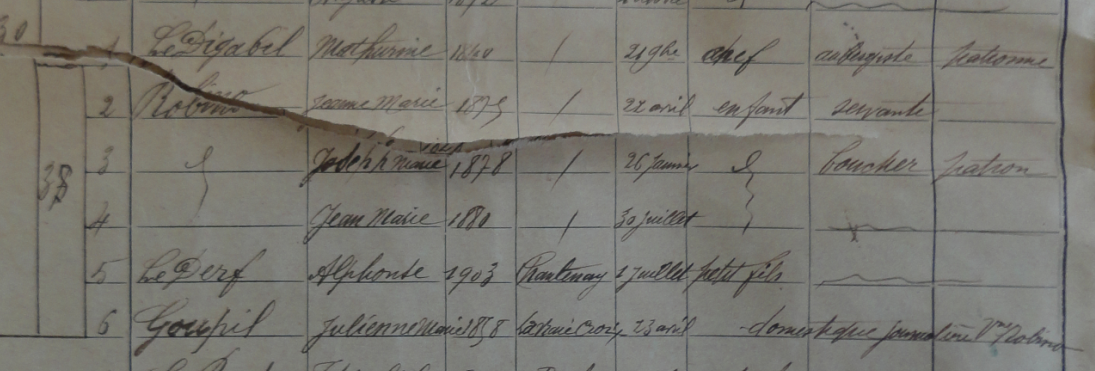 1 Le Digabel Mathurine 1840 / 21 9bre chef aubergiste patronne
2 Robino Jeanne Marie 1875 / 22 avril enfant servante
3 Joseph Marie 1878 / 26 janvier boucher patron
38
4 Jean Marie 1880 / 30 juillet
5 Le Derf Alphonse 1903 Chantenay 1 juillet petit fils
6 Goupil Julienne Marie 1858 23 avril domestique journalière Vve Robino